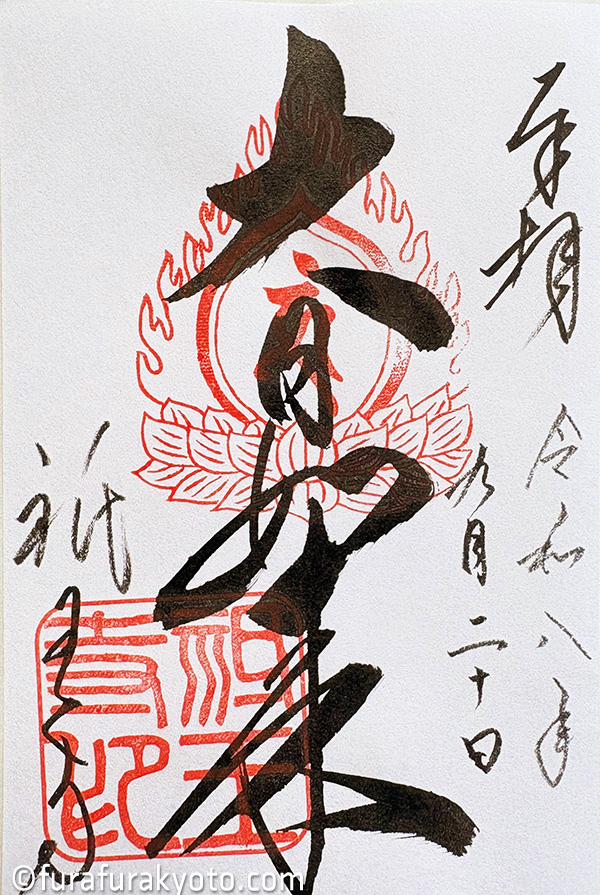 奉拝
令和八年
九月二十日
大日如来
祇王寺
祇王寺印
©furafurakyoto.com